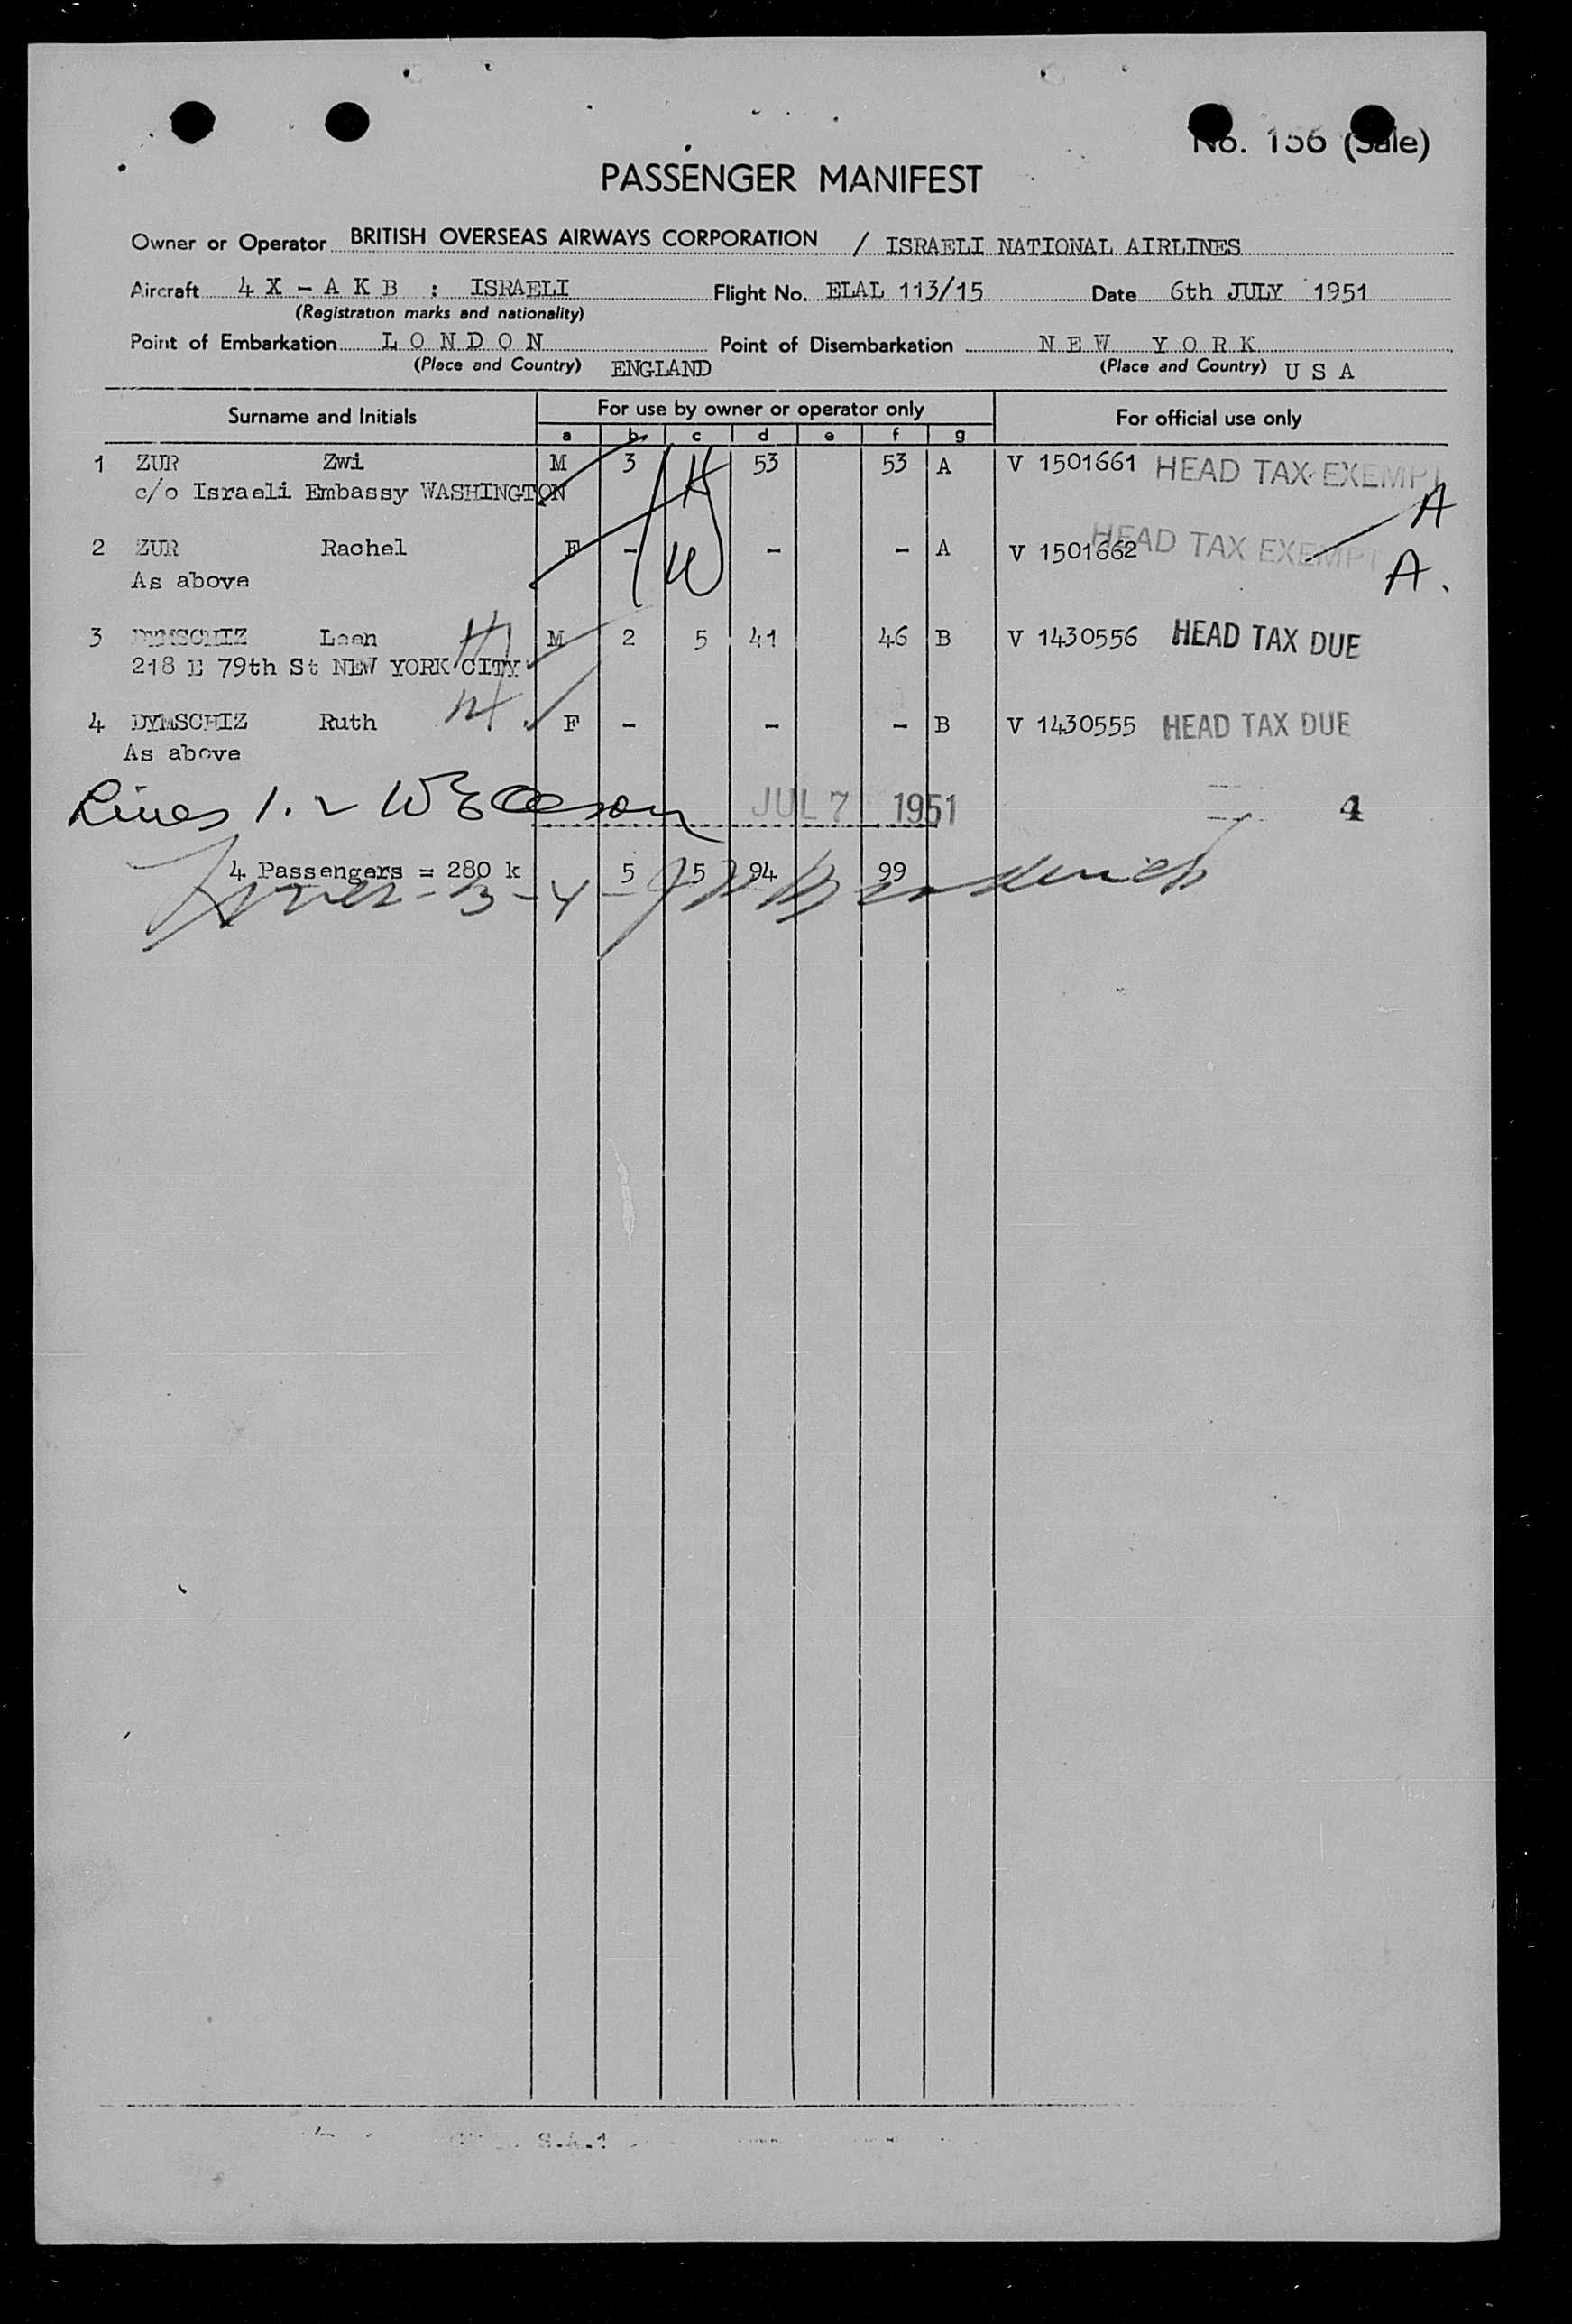 No. 156 (Sale)
PASSENGER MANIFEST
Owner or Operator BRITISH OVERSEAS AIRWAYS CORPORATION / ISRAELI NATIONAL AIRLINES
Aircraft 4 X - A K B : ISRAELI Flight No. ELAL 113/15 Date 6th JULY 1951
(Registration marks and nationality)
Point of Embarkation L O N D O N Point of Disembarkation N E W Y O R K
(Place and Country) ENGLAND (Place and Country) U S A
Surname and Initials For use by owner or operator only For official use only
a b c d e f g
1 ZUR Zwi M 3 53 53 A V 1501661 HEAD TAX EXEMPT
c/o Israeli Embassy WASHINGTON A
2 ZUR Rachel F - - - A V 1501662 HEAD TAX EXEMPT
As above A.
3 DYMSCHIZ Leen M 2 5 41 46 B V 1430556 HEAD TAX DUE
218 E 79th St NEW YORK CITY
4 DYMSCHIZ Ruth F - - - B V 1430555 HEAD TAX DUE
As above
Lines 1. 2 JUL 7 1951 4
4 Passengers = 280 k 5 5 94 99
Lines - 3 - 4 -